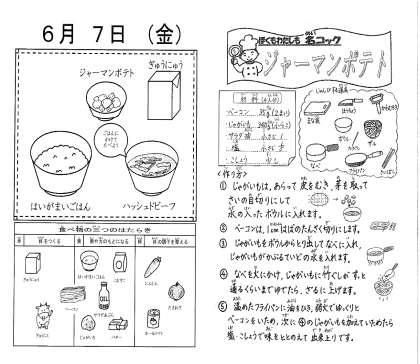 6月 7日 (金)
ジャーマンポテト
ぎゅうにゅう
ごはんに
かけて
たべよう
はいがまいごはん
ハッシュドビーフ
食べ物の三つのはたらき
ぎゅうにゅう
はいがまいごはん
ベーコン
じゃがいも
バター
にんじん
ぼくもわたしも 名コック
ジャーマンポテト
材料(4人分)
・ベーコン
・じゃがいも
・サラダ油 小さじ
・塩 小さじ
・こしょう 少し
じゅんび・器具
ボウル
ざる
なべ
フライパン
<作り方>
① じゃがいもは、あらって皮をむき、芽を取って
さいの目切りにして
水の入ったボウルに入れます。
② ベーコンは、1cmはばのたんざく切りにします。
③ じゃがいもをボウルからとり出してなべに入れ、
じゃがいもがかぶるくらいの水を入れます。
④ なべを火にかけ、じゃがいもに竹ぐしが、すっと
通るくらいまでゆでたら、ざるに上げます。
⑤ 温めたフライパンに油をひき、弱火でゆっくりと
ベーコンをいため、次に④のじゃがいもを加えていためたら
塩・こしょうで味をととのえて出来上りです。